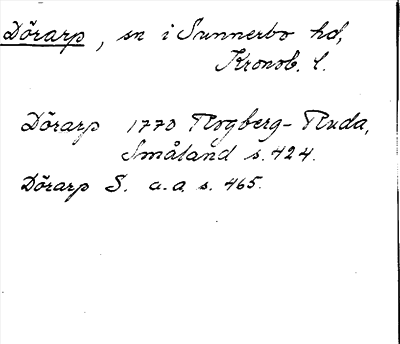 Dörarp, sn i Sunnerbo hd,
Kronob. l.
Dörarp 1770 Rogberg-Ruda,
Småland s. 424.
Dörarp S. a.a. s. 465.